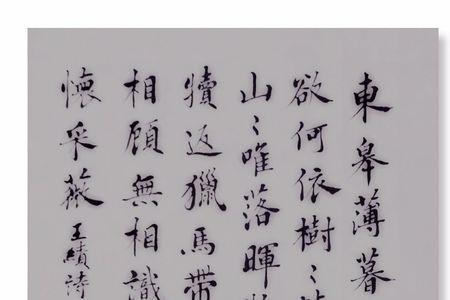 東皋薄暮
欲何依樹〻
山〻唯落暉
犢返獵馬帶
相顧無相識
懷采薇 王績詩